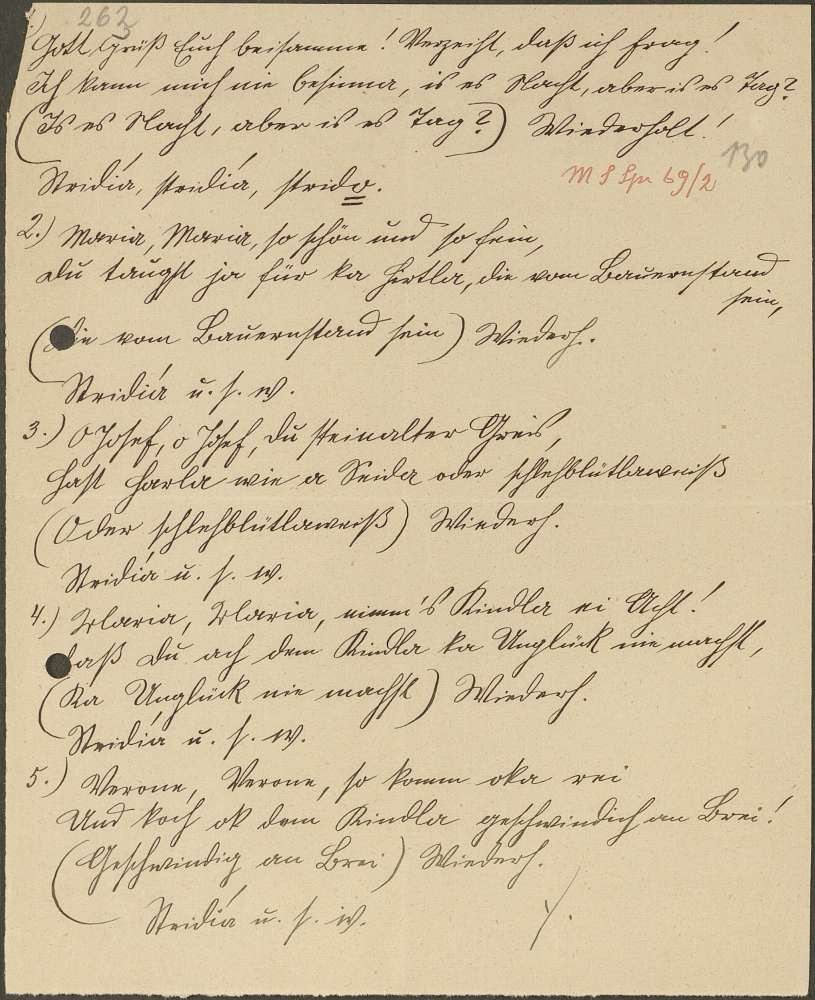 262
1.)
Gott grüß Euch beisamme! Verzeiht, daß ich frag!
Ich kann mich nie besinna, is es Nacht, aber is es Tag?
(Is es Nacht, aber is es Tag?) Wiederholt!
130
Stridiá, stridiá, strido.
M S Spr 69/2
2.) Maria, Maria, so schön und so fein,
Du taugst ja für ka Hirtla, die vom Bauernstand
sein,
(Die vom Bauernstand sein) Wiederh.
Stridiá u. s. w.
3.) O Josef, o Josef, du steinalter Greis,
Hast Harla wie a Seida oder schlehblütlaweiß
(Oder schlehblütlaweiß) Wiederh.
Stridiá u. s. w.
4.) Maria, Maria, nimm's Kindla ei Acht!
Daß Du ach dem Kindla ka Unglück nie machst,
(Ka Unglück nie machst) Wiederh.
Stridiá u. s. w.
5.) Verone, Verone, so komm oka rei
Und koch ok dem Kindla geschwindich an Brei!
(Geschwindig an Brei) Wiederh.
Stridiá u. s. w.